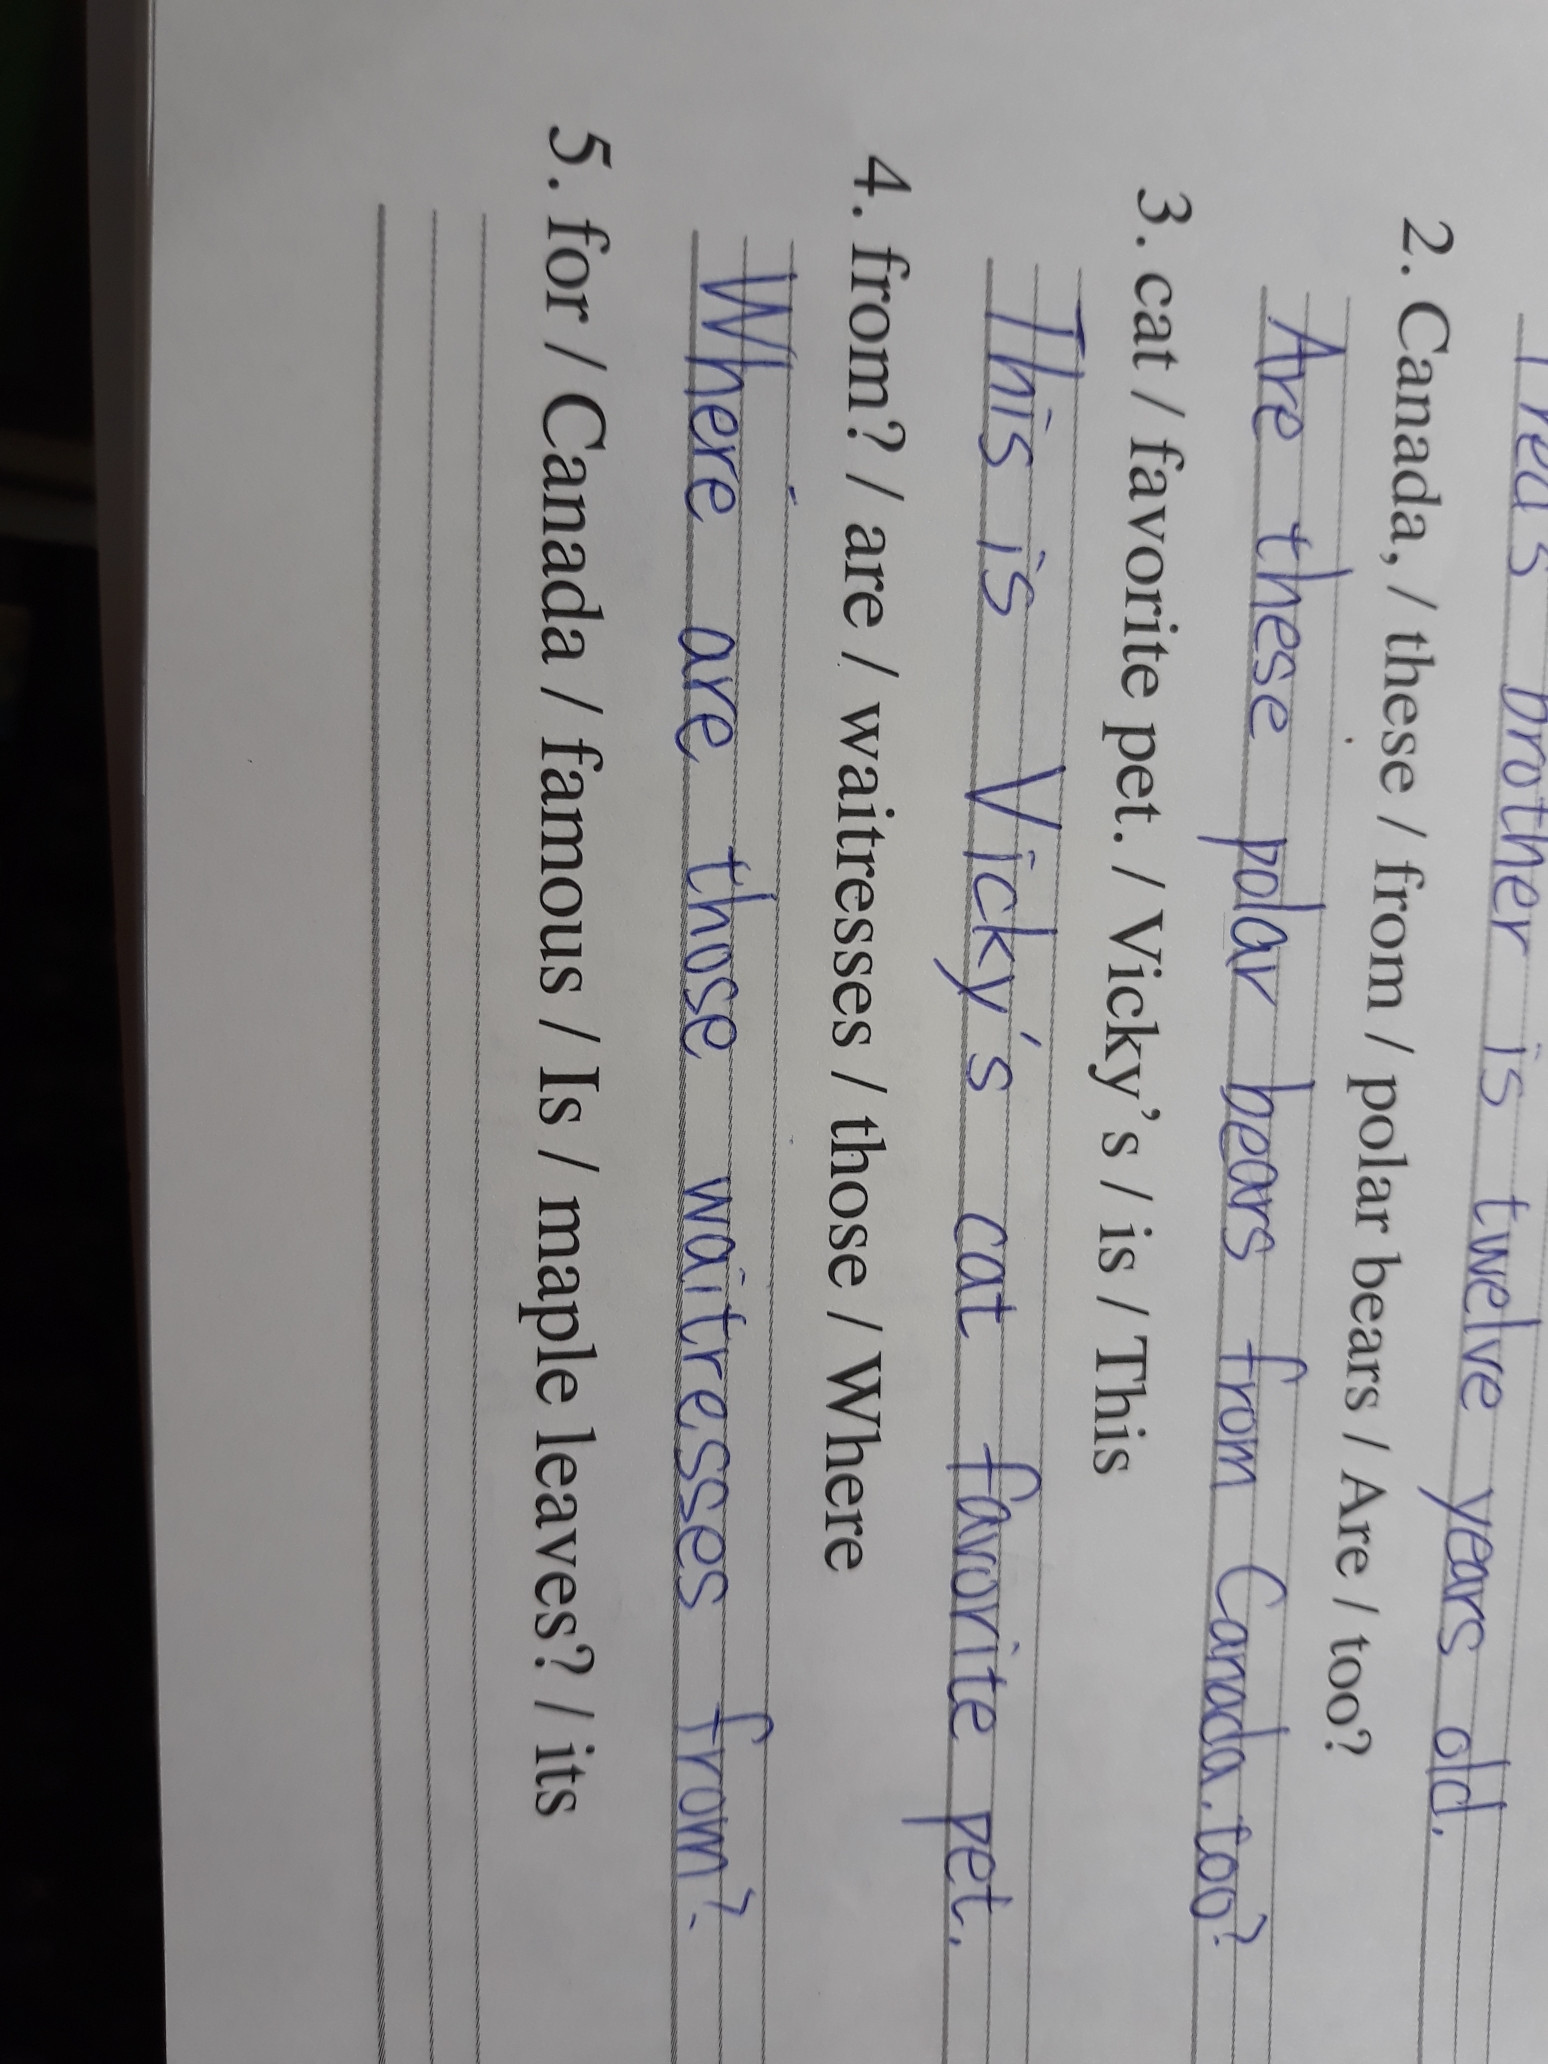 brother is twelve years old.
2. Canada, / these / from / polar bears / Are / too?
Are these polar bears from Canada, too?
3. cat / favorite pet. / Vicky's / is / This
This is Vicky's cat favorite pet.
4. from? / are / waitresses / those / Where
Where are those waitresses from?
5. for / Canada / famous / Is / maple leaves? / its